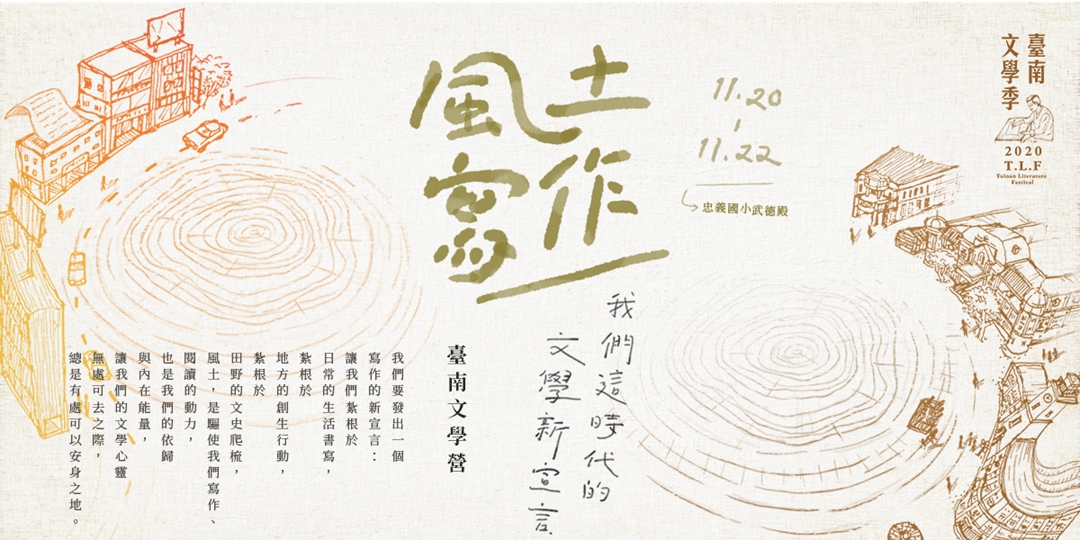 臺南
文學季
2020
T.L.F
Tainan Literature
Festival
風土
寫作
11.20
-
11.22
忠義國小武德殿
我們這時代的
文學新宣言
臺南文學營
我們要發出一個
寫作的新宣言：
讓我們紮根於
日常的生活書寫，
紮根於
地方的創生行動，
紮根於
田野的文史爬梳，
風土，是驅使我們寫作、
閱讀的動力，
也是我們的依歸
與內在能量，
讓我們的文學心靈
無處可去之際，
總是有處可以安身之地。